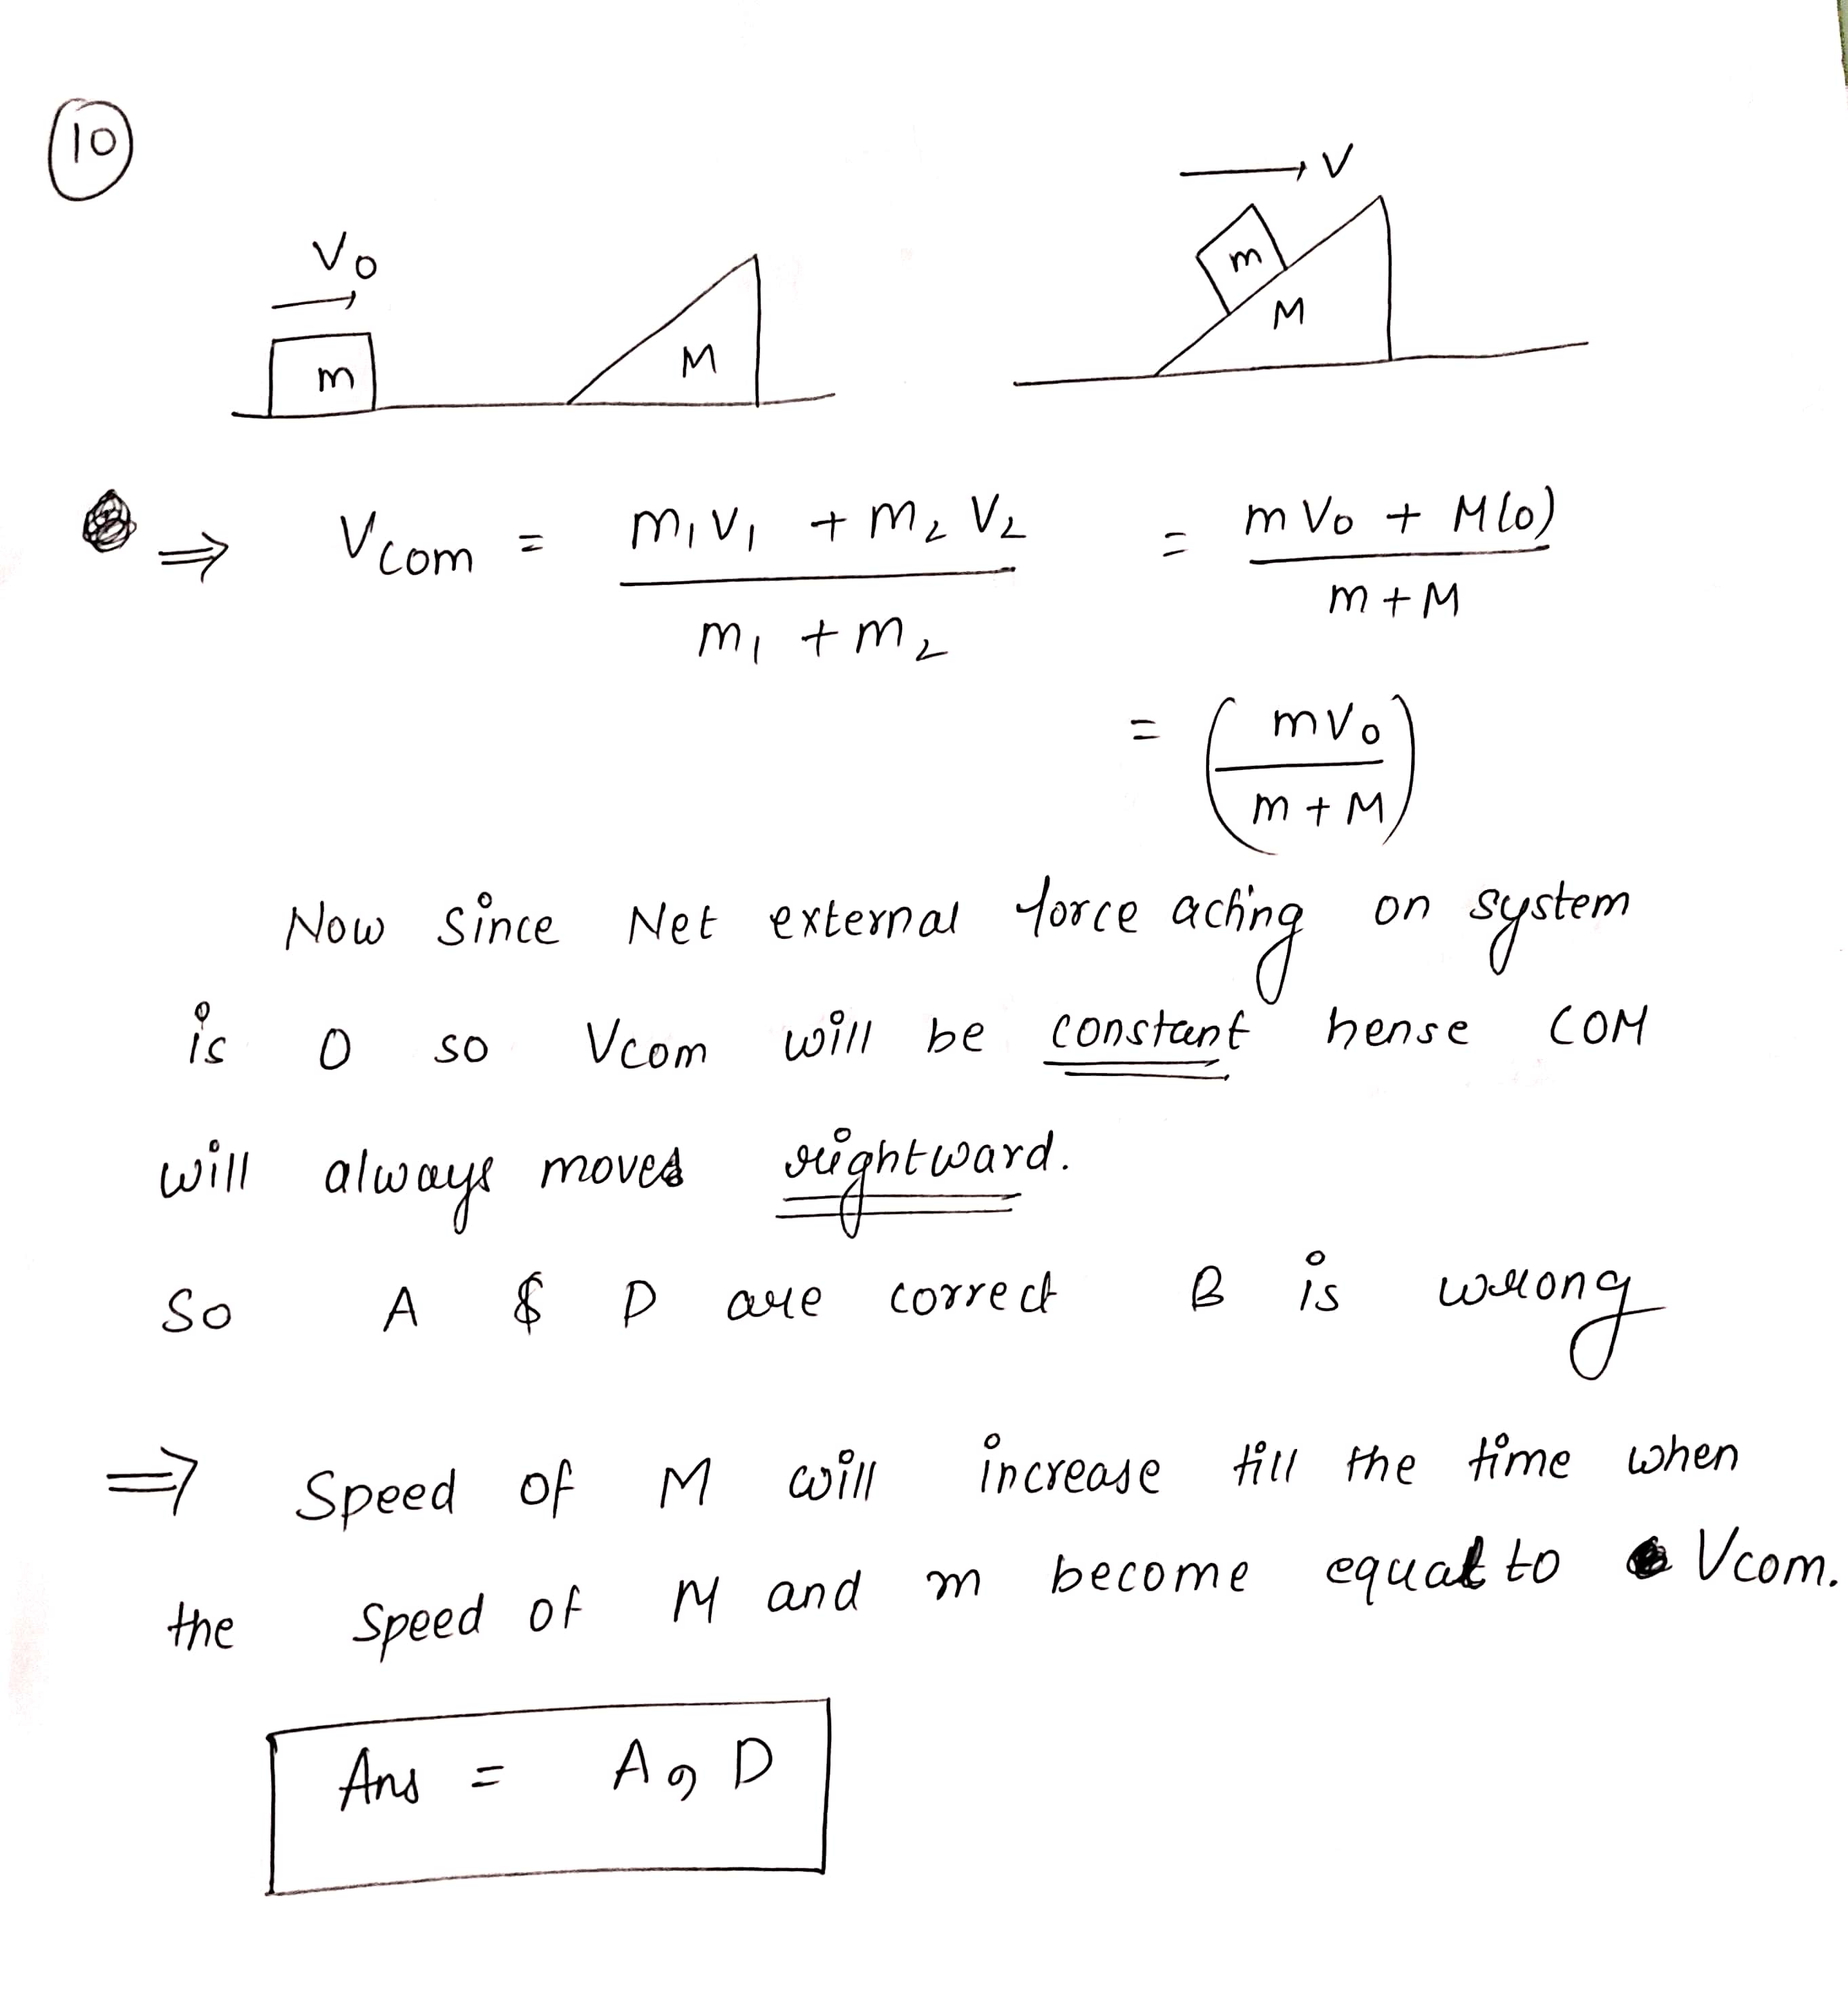 10
V
V0
m
M
m
M
⇒ Vcom = m1V1 + m2V2 / m1 + m2 = mV0 + M(0) / m + M
= (mV0 / m + M)
Now since Net external force acting on system
is 0 so Vcom will be constant hense COM
will always moves rightward.
So A & D are correct B is wrong
⇒ Speed of M will increase till the time when
the speed of M and m become equal to Vcom.
Ans = A, D